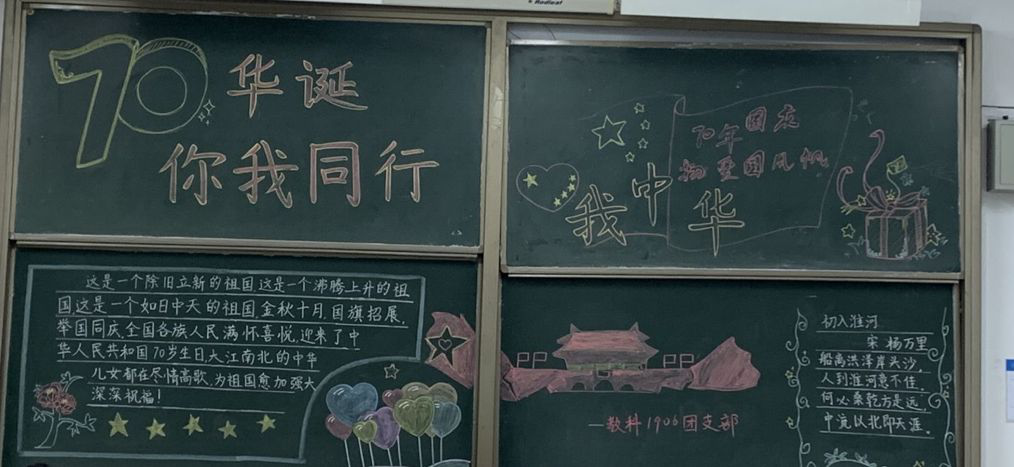 Redleaf
70华诞
你我同行
70年国庆
我中华
这是一个除旧立新的祖国,这是一个沸腾上升的祖
国,这是一个如日中天的祖国,金秋十月,国旗招展,
举国同庆,全国各族人民满怀喜悦,迎来了中
华人民共和国70岁生日,大江南北的中华
儿女都在尽情高歌,为祖国愈加强大
深深祝福!
一教科1906团支部
初入淮河
宋 杨万里
船离洪泽岸头沙,
人到淮河意不佳。
何必桑乾方是远,
中流以北即天涯。